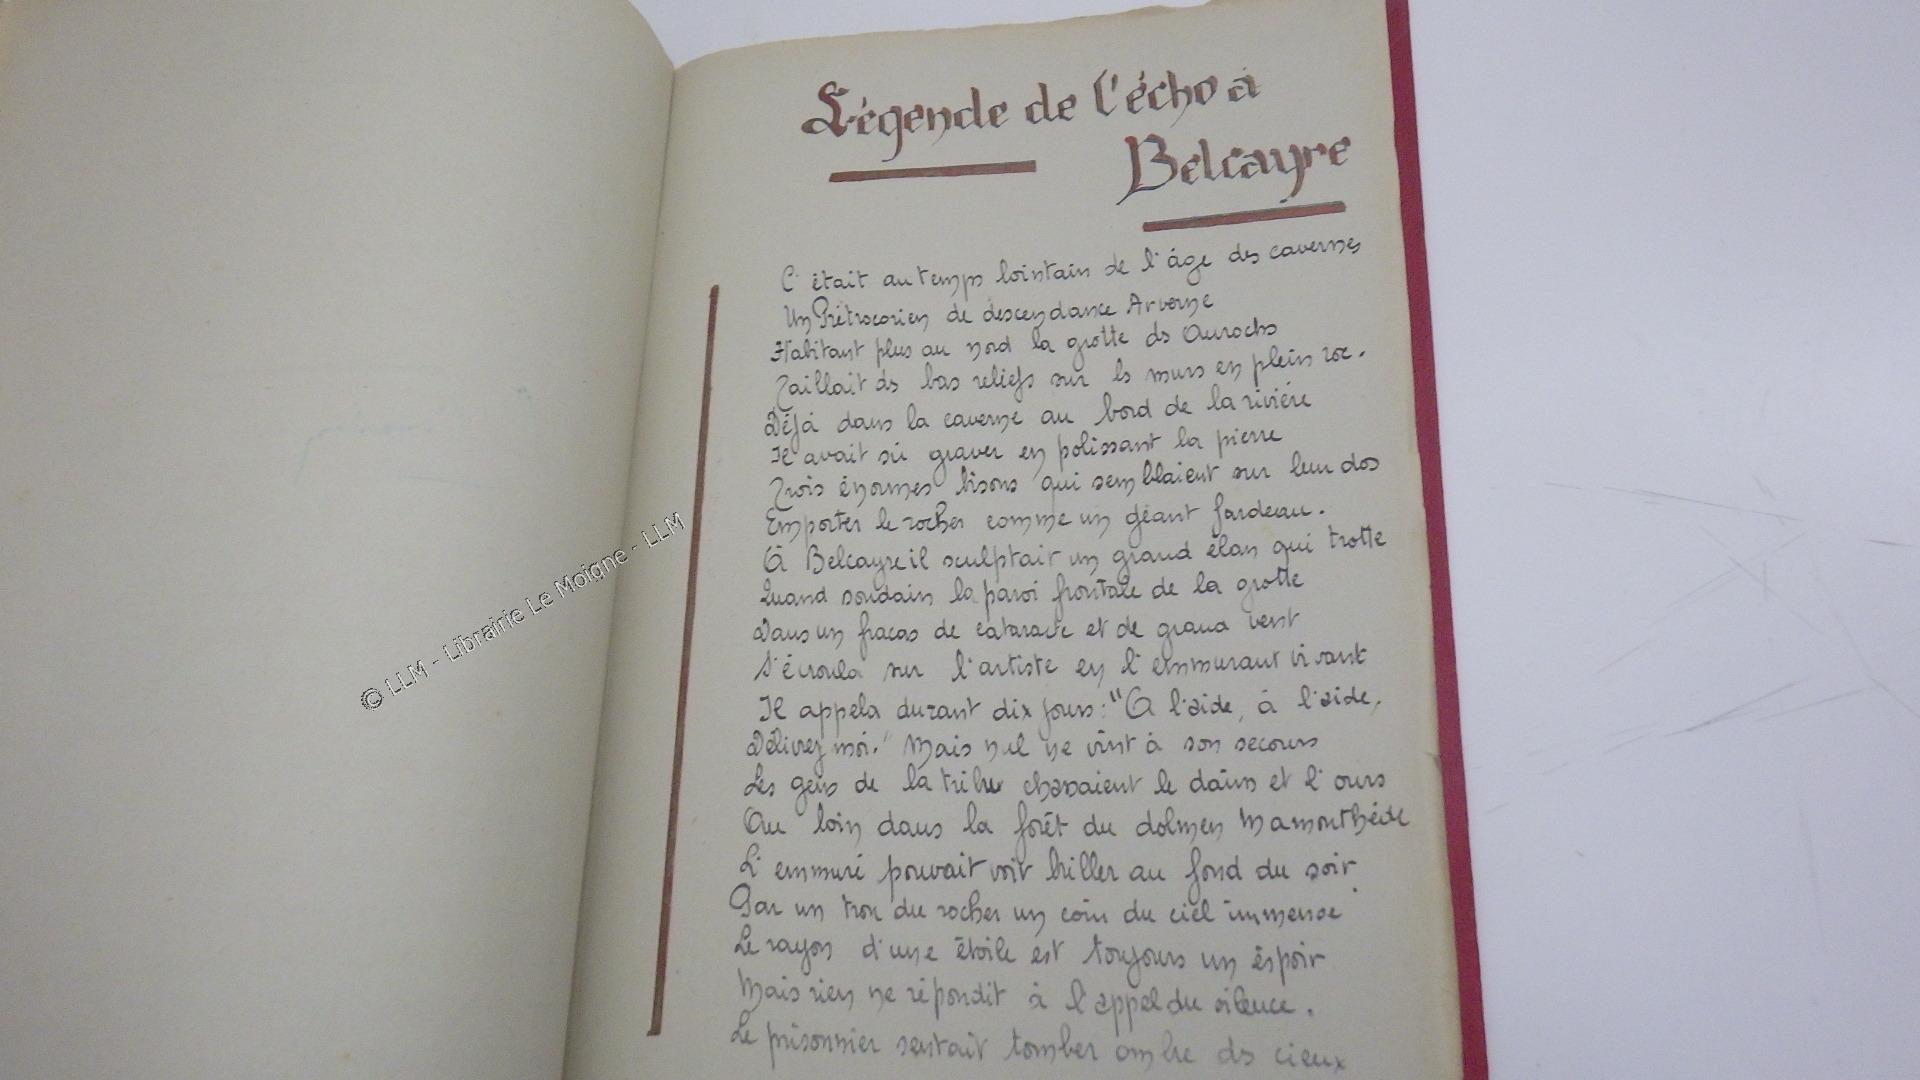 Légende de l'écho à
Belcayre
C'était au temps lointain de l'âge des cavernes
Un Pétrocorien de descendance Arverne
Habitant plus au nord la grotte ds Aurochs
Taillait ds bas reliefs sur ls murs en plein roc.
Déjà dans la caverne au bord de la rivière
Il avait sû graver en polissant la pierre
Trois énormes bisons qui semblaient sur leur dos
Emporter le rocher comme un géant fardeau.
A Belcayre il sculptait un grand élan qui trotte
Quand soudain la paroi frontale de la grotte
Dans un fracas de cataracte et de grand vent
S'écroula sur l'artiste en l'emmurant vivant
Il appela durant dix jours : "A l'aide, à l'aide,
Délivrez moi." Mais nul ne vînt à son secours
Les gens de la tribu chassaient le daim et l'ours
Au loin dans la forêt du dolmen
L'emmuré pouvait voir briller au fond du soir
Par un trou du rocher un coin du ciel immense
Le rayon d'une étoile est toujours un éspoir
Mais rien ne répondit à l'appel du silence.
Le prisonnier sentait tomber ombre ds cieux
© LLM - Librairie Le Moigne - LLM